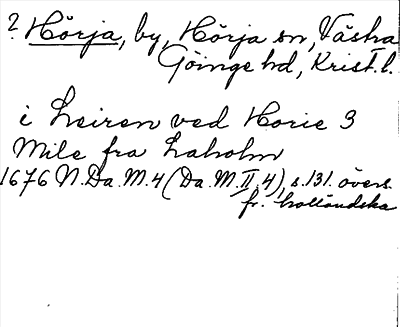 ? Hörja, by, Hörja sn, Västra
Göinge hd, Krist. l.
i Leiren ved Horie 3
Mile fra Laholm
1676 N.Da.M.4 (Da.M.II,4), s.131. övers.
fr. holländska